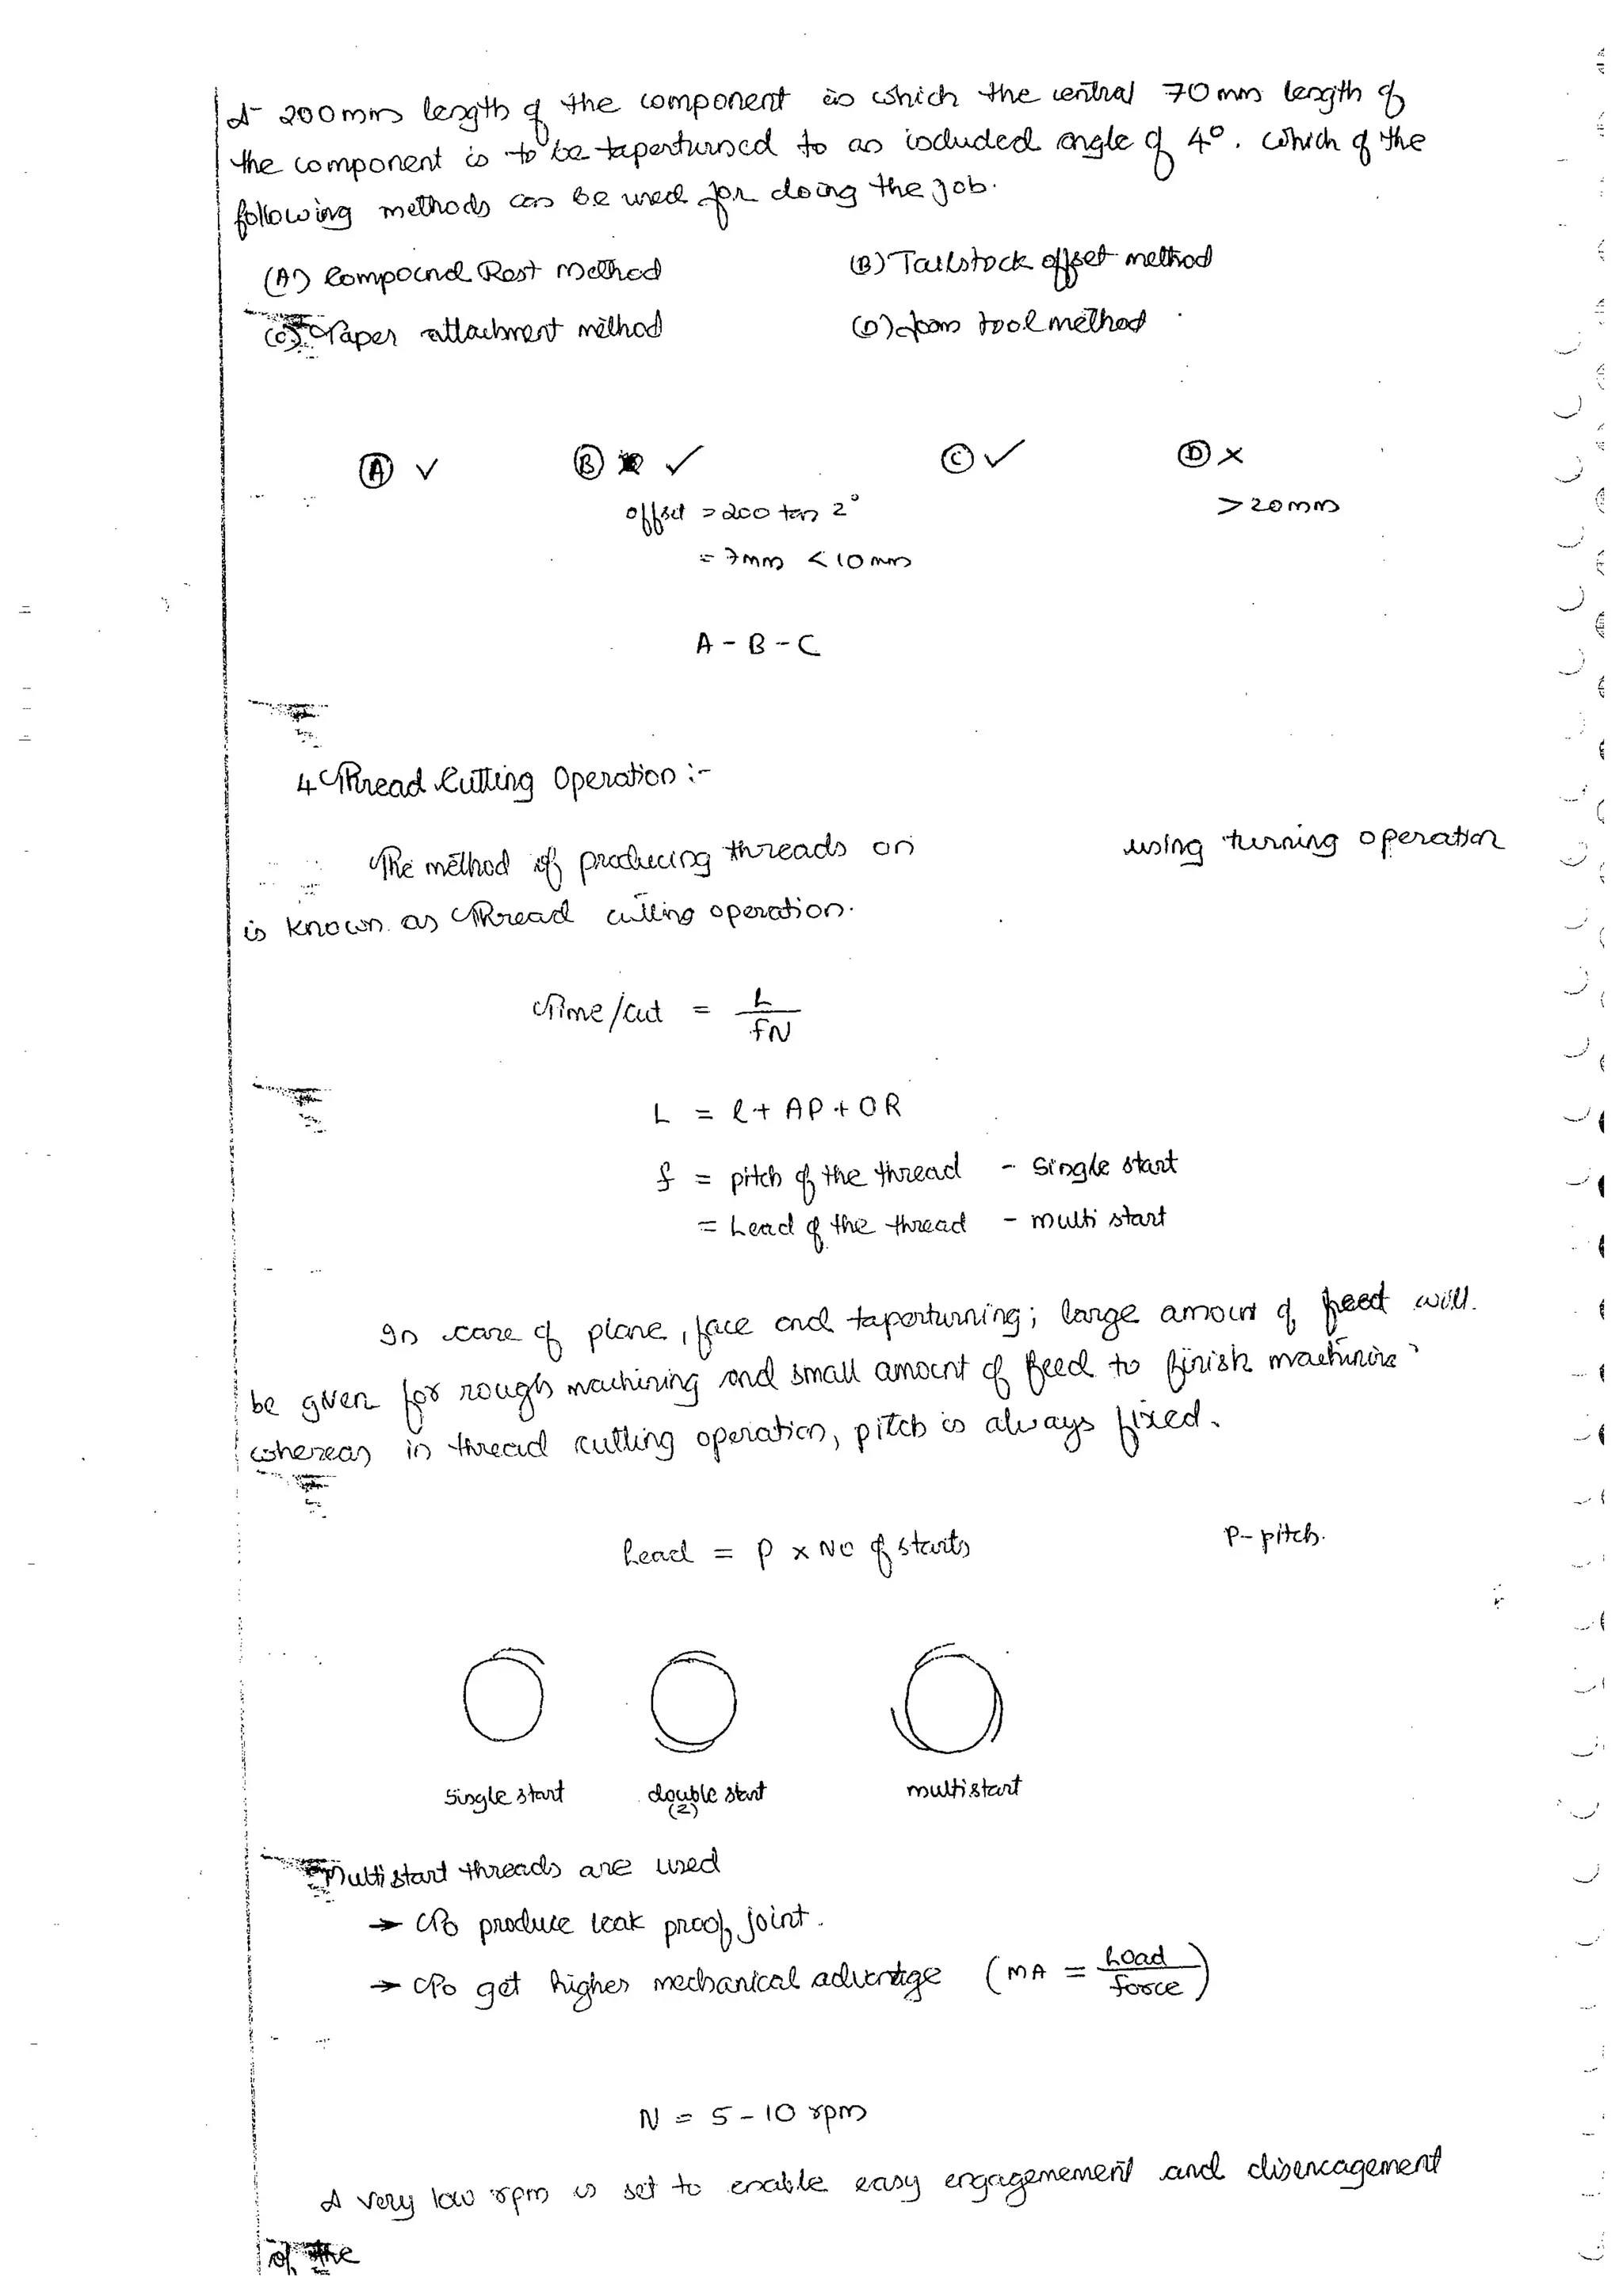 A 200mm length of the component in which the central 70mm length of
the component is to be taperturned to an included angle of 4°. Which of the
following methods can be used for doing the job.
(A) Compound Rest Method (B) Tailstock offset method
(C) Taper attachment method (D) Form tool method
Ⓐ ✓ Ⓑ ✓ Ⓒ ✓ Ⓓ ×
offset = 200 tan 2° > 20mm
= 7mm < 10mm
A - B - C
4 Thread Cutting Operation :-
The method of producing threads on using turning operation
is known as Thread cutting operation.
Time/cut = L / fN
L = l + AP + OR
f = pitch of the thread - Single start
= Lead of the thread - multi start
In case of plane, face and taperturning; large amount of feed will
be given for rough machining and small amount of feed to finish machining
whereas in thread cutting operation, pitch is always fixed.
Lead = P × No of starts P - pitch.
Single start double start multistart
(2)
Multistart threads are used
→ To produce leak proof joint.
→ To get higher mechanical advantage (MA = Load / force)
N = 5 - 10 rpm
A very low rpm is set to enable easy engagemement and disencagement
of the